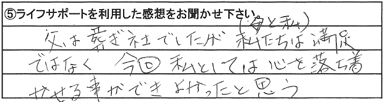 ⑤ライフサポートを利用した感想をお聞かせ下さい。
(母と私)
父は葬ぎ社でしたが 私たちは満足
ではなく 今回 私としては心を落ち着
かせる事ができ よかったと思う